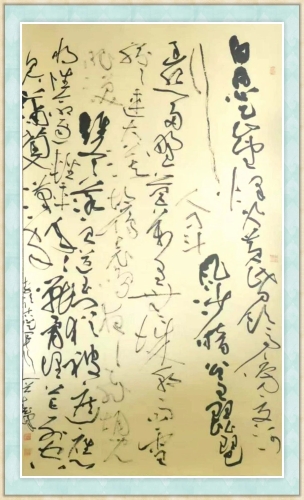 白日登山望烽火黄昏饮马傍交河
行人刁斗风沙暗公主琵琶
幽怨多野营万里无城郭雨雪
纷纷连大漠胡雁哀鸣夜夜飞胡儿
眼泪双双落闻道玉门犹被遮应
将性命逐轻车年年战骨埋荒外空
见葡萄入汉家